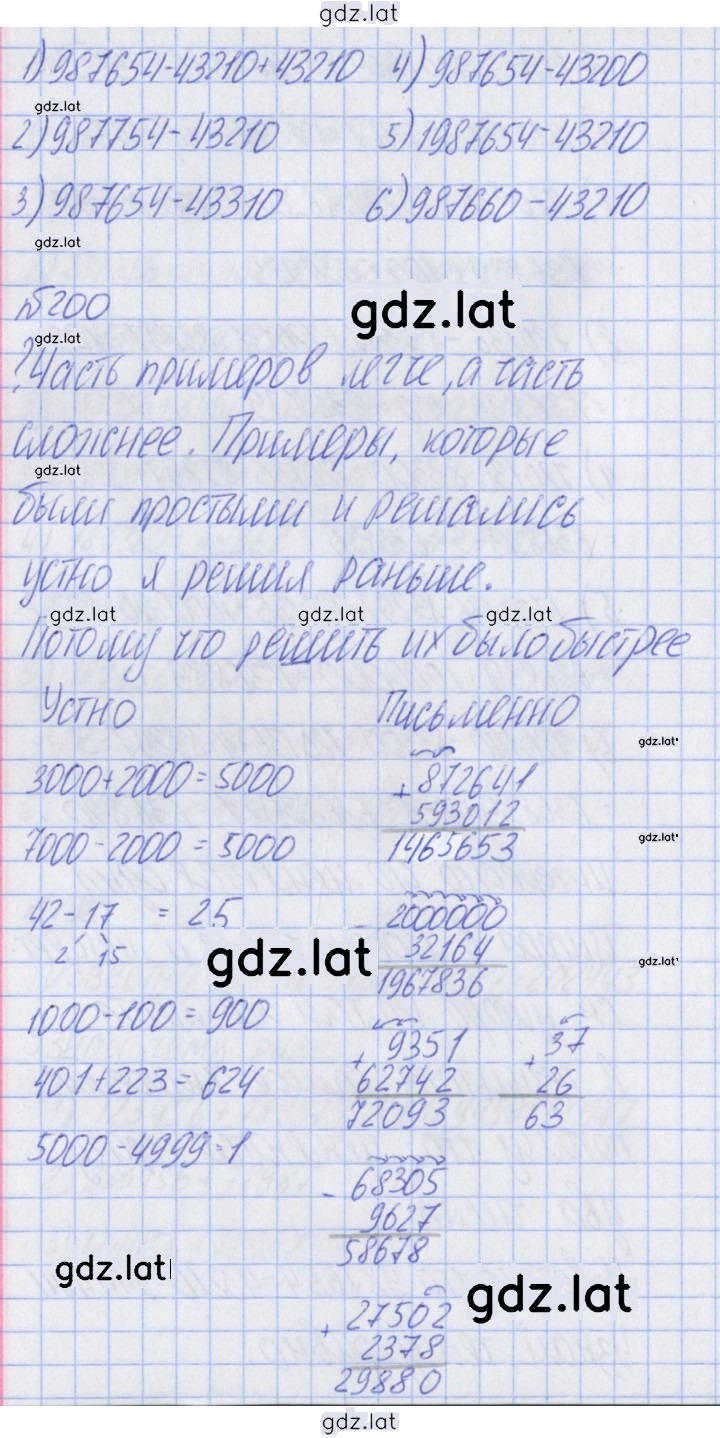 gdz.lat
1) 987654-43210+43210 4) 987654-43200
gdz.lat
2) 987754-43210 5) 1987654-43210
3) 987654-43310 6) 987660-43210
gdz.lat
№200 gdz.lat
gdz.lat
? Часть примеров легче, а часть
сложнее. Примеры, которые
gdz.lat
были простыми и решались
устно я решил раньше.
gdz.lat gdz.lat gdz.lat
Потому что решить их было быстрее
Устно Письменно
gdz.lat
3000+2000=5000 + 872641
593012
7000-2000=5000 1465653 gdz.lat
42-17 = 25 - 2000000
2 15 32164
gdz.lat gdz.lat
1967836
1000-100=900
+ 9351 + 37
401+223=624 62742 26
72093 63
5000-4999=1
- 68305
9627
58678
gdz.lat gdz.lat
+ 27502
2378
29880
gdz.lat